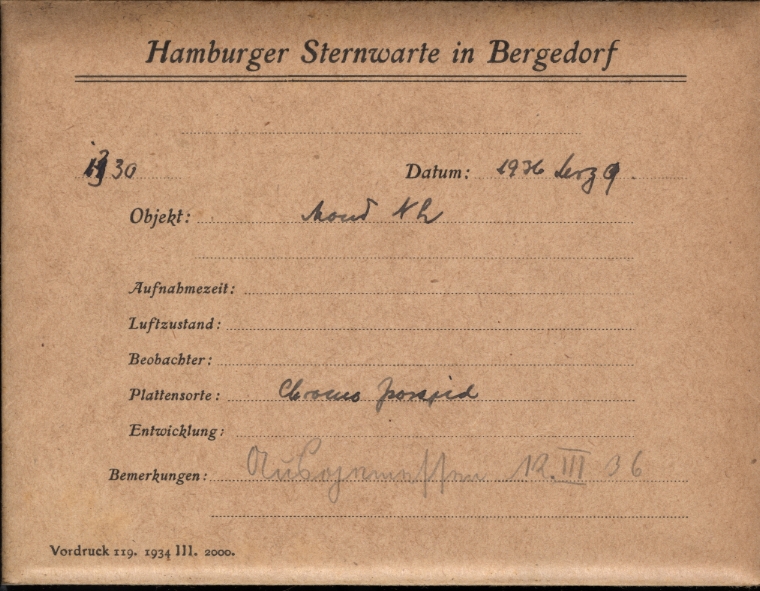 Hamburger Sternwarte in Bergedorf
30 Datum: 1936 März 9.
Objekt: Mond
Aufnahmezeit:
Luftzustand:
Beobachter:
Plattensorte: Chromo
Entwicklung:
Bemerkungen: Ausgemessen 12.III 36
Vordruck 119. 1934 III. 2000.